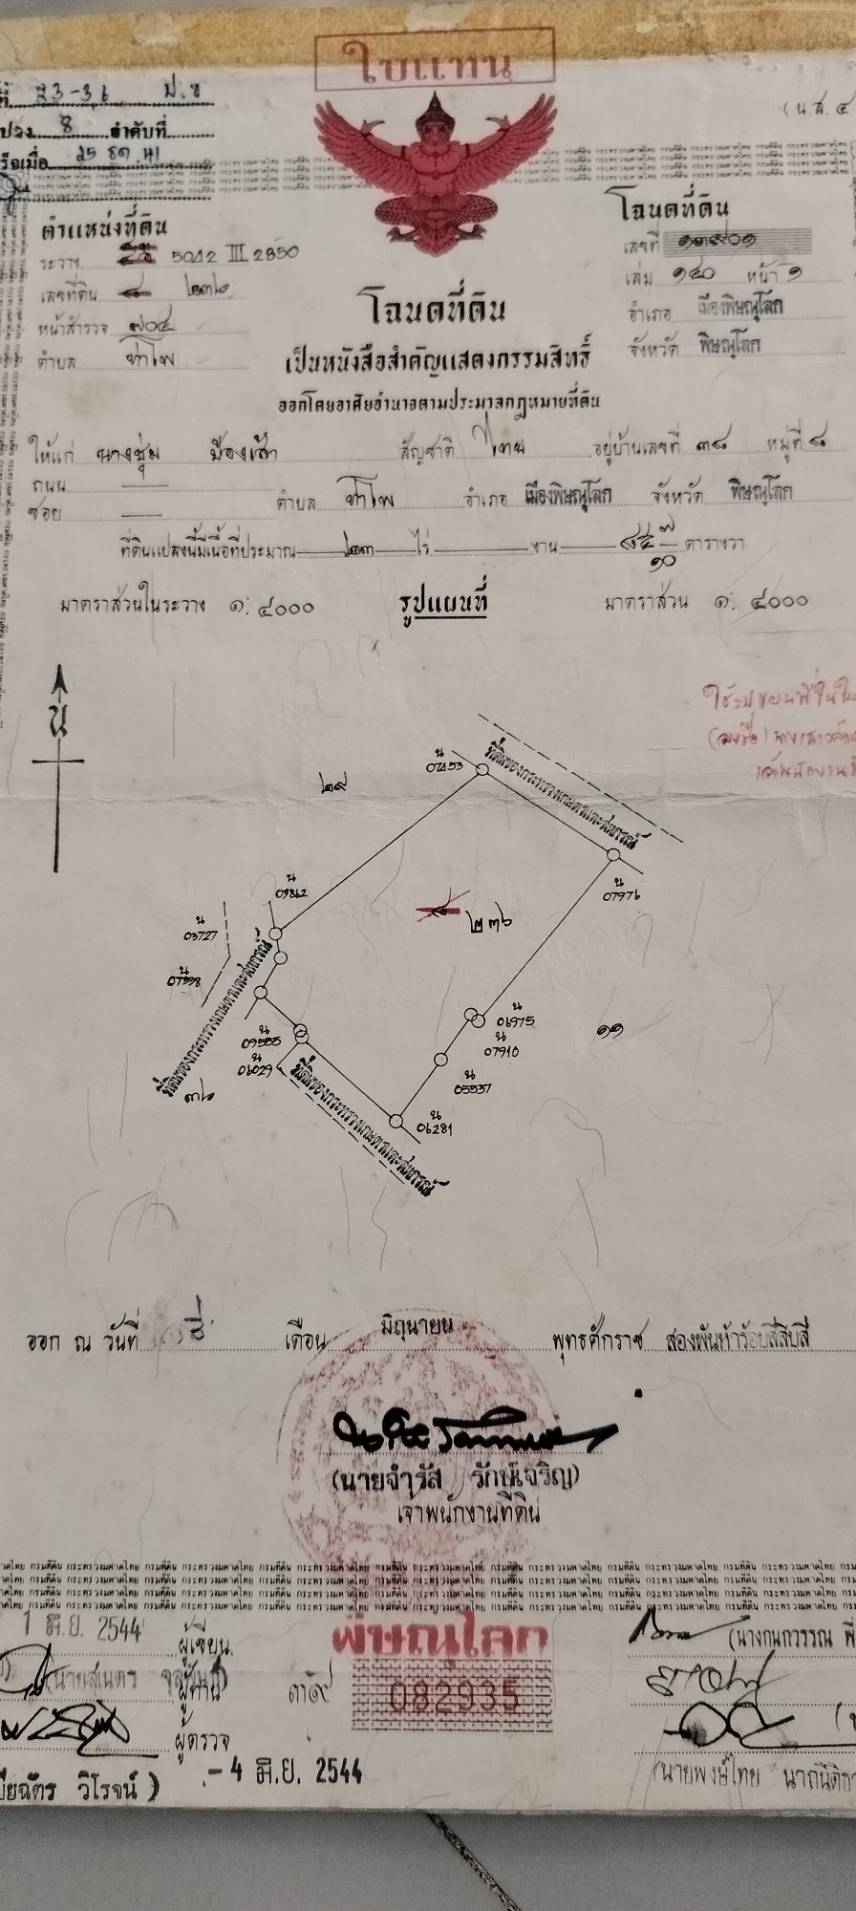 ใบแทน
ที่ 23-36 ป.ช
8 ลำดับที่
(น.ส. ๔
ตำแหน่งที่ดิน
ระวาง 5042 III 2850
เลขที่ดิน ๘ ๒๓๖
หน้าสำรวจ ๗๐๔
ตำบล ท่าโพ
โฉนดที่ดิน
เลขที่ ๑๓๙๐๑
เล่ม ๑๔๐ หน้า ๑
อำเภอ เมืองพิษณุโลก
จังหวัด พิษณุโลก
โฉนดที่ดิน
เป็นหนังสือสำคัญแสดงกรรมสิทธิ์
ออกโดยอาศัยอำนาจตามประมวลกฎหมายที่ดิน
ให้แก่ นางชุ่ม สัญชาติ ไทย อยู่บ้านเลขที่ ๓๘ หมู่ที่ ๘
ถนน
ซอย ตำบล ท่าโพ อำเภอ เมืองพิษณุโลก จังหวัด พิษณุโลก
ที่ดินแปลงนี้มีเนื้อที่ประมาณ ๒๓ ไร่ งาน ๘๔ ๗/๑๐ ตารางวา
มาตราส่วนในระวาง ๑: ๔๐๐๐ รูปแผนที่ มาตราส่วน ๑: ๔๐๐๐
น
ใช้รูปแผนที่ใน
(ลงชื่อ)
เจ้าพนักงาน
ที่ดินของกระทรวงเกษตรและสหกรณ์
๒๙
น
03862
น
07976
น
03727
๘ ๒๓๖
น
06975
น
07910
๑๑
น
น
06029
ที่ดินของกระทรวงเกษตรและสหกรณ์
น
05537
ที่ดินของกระทรวงเกษตรและสหกรณ์
๓๖
น
06281
ออก ณ วันที่ สี่ เดือน มิถุนายน พุทธศักราช สองพันห้าร้อยสี่สิบสี่
(นายจำรัส รักษ์เจริญ)
เจ้าพนักงานที่ดิน
กรมที่ดิน กระทรวงมหาดไทย กรมที่ดิน กระทรวงมหาดไทย กรมที่ดิน กระทรวงมหาดไทย
1 มิ.ย. 2544 ผู้เขียน
พิษณุโลก
(นางกนกวรรณ
(นายสุเนตร
ผู้ทาน
082935
ผู้ตรวจ
วิโรจน์)
- 4 มิ.ย. 2544
(นายพงษ์ไทย